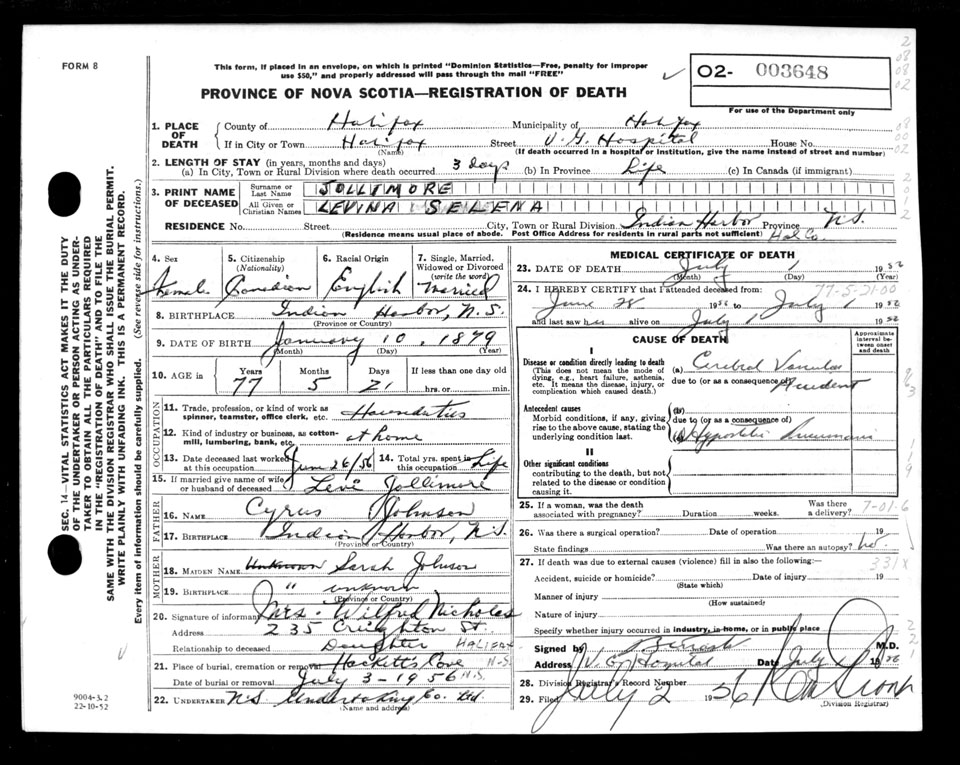 FORM 8
This form, if placed in an envelope, on which is printed "Dominion Statistics—Free, penalty for improper
use $50," and properly addressed will pass through the mail "FREE"
O2- 003648
For use of the Department only
PROVINCE OF NOVA SCOTIA—REGISTRATION OF DEATH
1. PLACE OF DEATH
County of Halifax Municipality of Halifax
If in City or Town Halifax Street V. G. Hospital House No.
(Name) (If death occurred in a hospital or institution, give the name instead of street and number)
2. LENGTH OF STAY (in years, months and days)
(a) In City, Town or Rural Division where death occurred 3 days (b) In Province Life (c) In Canada (if immigrant)
3. PRINT NAME OF DECEASED
Surname or Last Name JOLLIMORE
All Given or Christian Names LEVINA SELENA
RESIDENCE No. Street City, Town or Rural Division Indian Harbor Province N.S.
(Residence means usual place of abode. Post Office Address for residents in rural parts not sufficient) Hal Co.
4. Sex Female
5. Citizenship (Nationality) Canadian
6. Racial Origin English
7. Single, Married, Widowed or Divorced (write the word) Married
8. BIRTHPLACE Indian Harbor, N.S.
(Province or Country)
9. DATE OF BIRTH January 10, 1879
(Month) (Day) (Year)
10. AGE in Years 77 Months 5 Days 21 If less than one day old
hrs. or min.
OCCUPATION
11. Trade, profession, or kind of work as spinner, teamster, office clerk, etc. Houseduties
12. Kind of industry or business, as cotton-mill, lumbering, bank, etc. at home
13. Date deceased last worked at this occupation June 26/56
14. Total yrs. spent in this occupation Life
15. If married give name of wife or husband of deceased Levi Jollimore
FATHER
16. Name Cyrus Johnson
17. Birthplace Indian Harbor, N.S.
(Province or Country)
MOTHER
18. Maiden Name Unknown Sarah Johnson
19. Birthplace " unknown
(Province or Country)
20. Signature of informant Mrs. Wilfred Nicholas
Address 235 Creighton St.
Relationship to deceased Daughter HALIFAX N.S.
21. Place of burial, cremation or removal Hackett's Cove
Date of burial or removal July 3-1956 N.S.
22. UNDERTAKER N.S. Undertaking Co. Ltd.
(Name and address)
MEDICAL CERTIFICATE OF DEATH
23. DATE OF DEATH July 1 19
(Month) (Day) (Year)
24. I HEREBY CERTIFY that I attended deceased from:
77-5-21-00
June 28 19 to July 1 19
and last saw her alive on July 1 19
CAUSE OF DEATH
Approximate interval between onset and death
I
Disease or condition directly leading to death
(This does not mean the mode of dying, e.g., heart failure, asthenia, etc. It means the disease, injury, or complication which caused death.)
(a) Cerebral Vascular
due to (or as a consequence of) Accident
Antecedent causes
Morbid conditions, if any, giving rise to the above cause, stating the underlying condition last.
(b)
due to (or as a consequence of)
(c) Hypostatic Pneumonia
II
Other significant conditions
contributing to the death, but not related to the disease or condition causing it.
25. If a woman, was the death associated with pregnancy? Duration weeks. Was there a delivery?
26. Was there a surgical operation? Date of operation 19
State findings Was there an autopsy? no.
27. If death was due to external causes (violence) fill in also the following: 331X
Accident, suicide or homicide? Date of injury 19
(State which)
Manner of injury
(How sustained)
Nature of injury
Specify whether injury occurred in industry, in home, or in public place
Signed by M.D.
Address V. G. Hospital Date July 1 19
28. Division Registrar's Record Number
29. Filed July 2 1956
(Division Registrar)
9004-3.2
22-10-52
SEC. 14—VITAL STATISTICS ACT MAKES IT THE DUTY
OF THE UNDERTAKER OR PERSON ACTING AS UNDER-
TAKER TO OBTAIN ALL THE PARTICULARS REQUIRED
IN THE "REGISTRATION OF DEATH" AND TO FILE THE
SAME WITH THE DIVISION REGISTRAR WHO SHALL ISSUE THE BURIAL PERMIT.
WRITE PLAINLY WITH UNFADING INK. THIS IS A PERMANENT RECORD.
Every item of information should be carefully supplied. (See reverse side for instructions.)